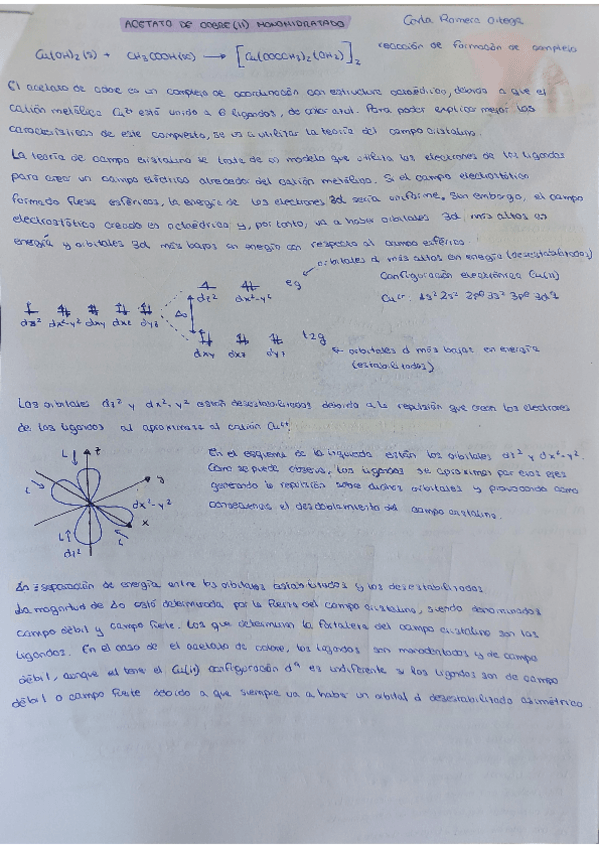 ACETATO DE COBRE (II) MONOHIDRATADO
Carla Romera Ortega
Cu(OH)₂(s) + CH₃COOH(ac) → [Cu(OOCCH₃)₂(OH₂)]₂ reacción de formación de complejo
El acetato de cobre es un complejo de coordinación con estructura octaédrica, debido a que el
catión metálico Cu²⁺ está unido a 6 ligandos, de color azul. Para poder explicar mejor las
características de este compuesto, se va a utilizar la teoría del campo cristalino.
La teoría de campo cristalino se trata de un modelo que utiliza los electrones de los ligandos
para crear un campo eléctrico alrededor del catión metálico. Si el campo electrostático
formado fuese esférico, la energía de los electrones 3d sería uniforme. Sin embargo, el campo
electrostático creado es octaédrico y, por tanto, va a haber orbitales 3d más altos en
energía y orbitales 3d más bajos en energía con respecto al campo esférico
orbitales d más altos en energía (desestabilizados)
eg
dz² dx²-y²
Configuración electrónica Cu(II)
Cu²⁺: 1s² 2s² 2p⁶ 3s² 3p⁶ 3d⁹
dz² dx²-y² dxy dxz dyz
Δo
t2g
dxy dxz dyz
orbitales d más bajos en energía
(estabilizados)
Los orbitales dz² y dx²-y² están desestabilizados debido a la repulsión que crean los electrones
de los ligandos al aproximarse al catión Cu²⁺
L z
y
L
dx²-y²
x
L
L
dz²
En el esquema de la izquierda están los orbitales dz² y dx²-y².
Como se puede observar, los ligandos se aproximan por esos ejes
generando la repulsión sobre dichos orbitales y provocando como
consecuencia el desdoblamiento del campo cristalino.
Δo = separación de energía entre los orbitales estabilizados y los desestabilizados
La magnitud de Δo está determinada por la fuerza del campo cristalino, siendo denominados
campo débil y campo fuerte. Los que determinan la fortaleza del campo cristalino son los
ligandos. En el caso de el acetato de cobre, los ligandos son monodentados y de campo
débil, aunque al tener el Cu(II) configuración d⁹ es indiferente si los ligandos son de campo
débil o campo fuerte debido a que siempre va a haber un orbital d desestabilizado asimétrico